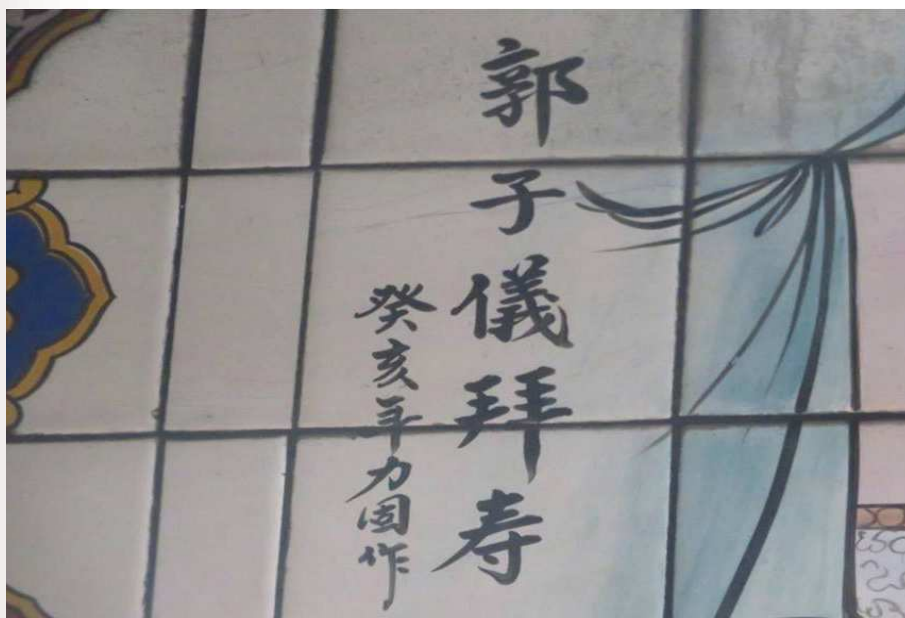 郭子儀拜寿
癸亥年力固作